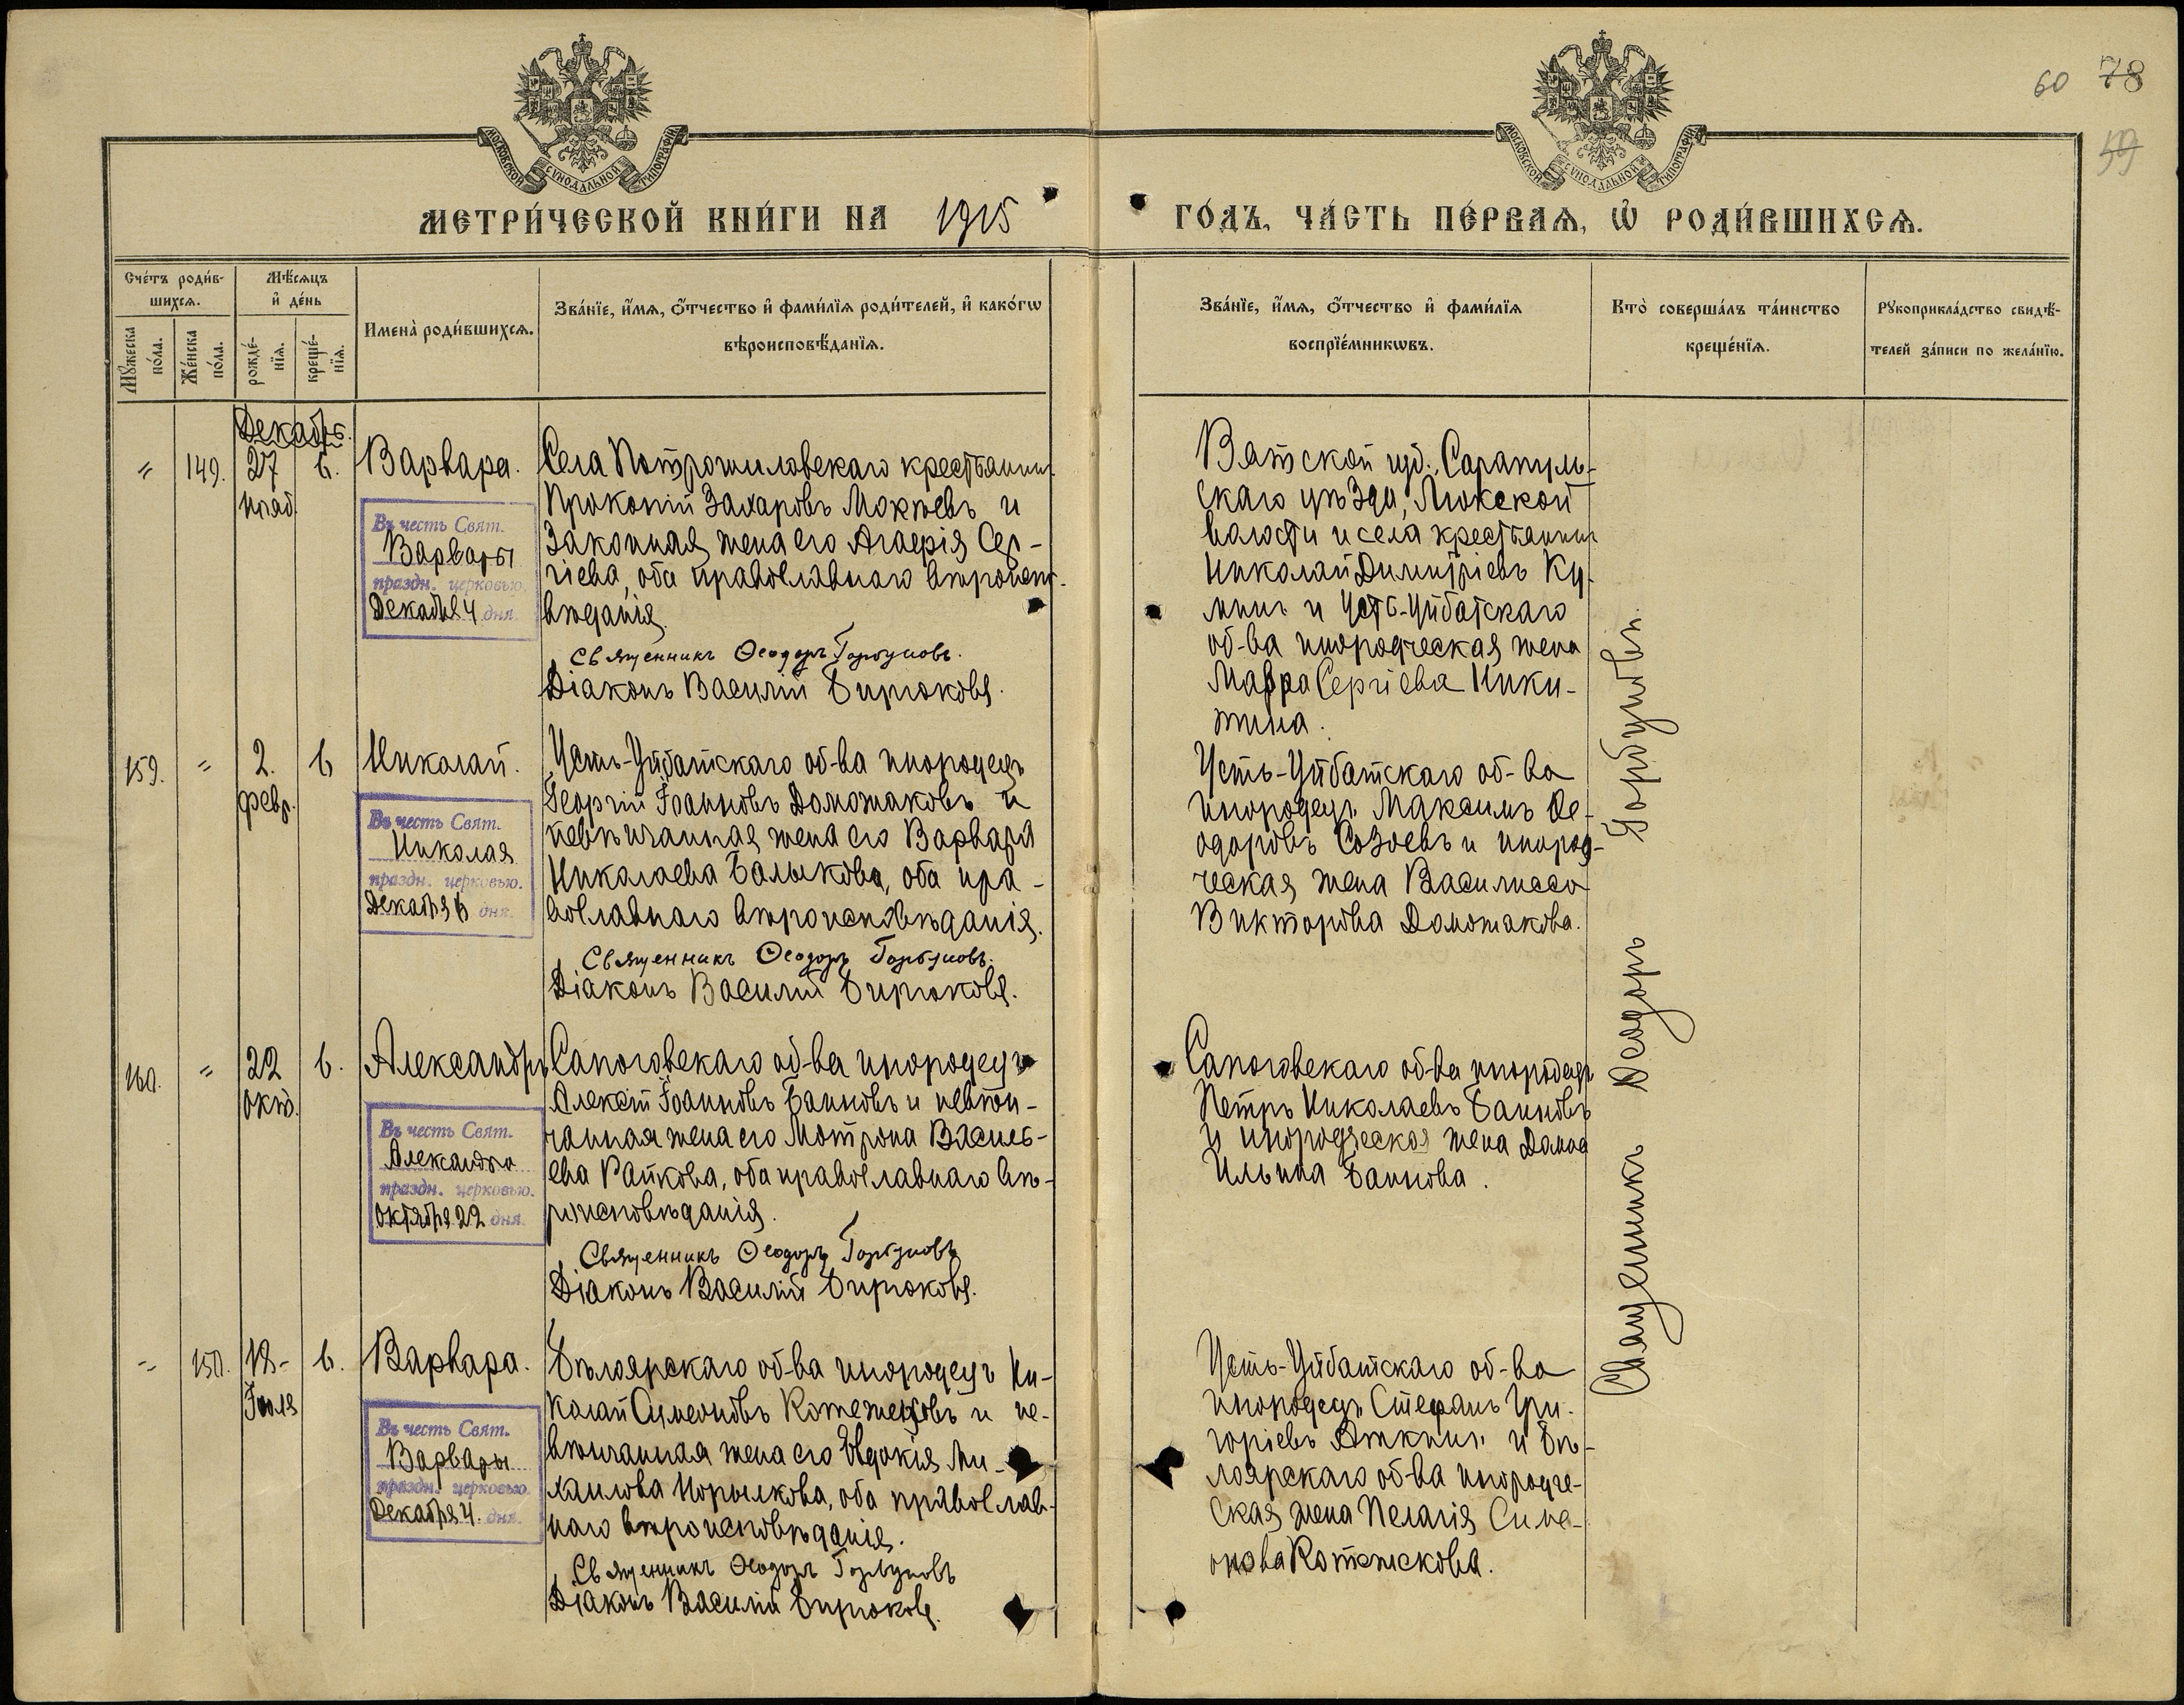 60 78
59
МОСКОВСКОЙ СУНОДАЛЬНОЙ ТИПОГРАФІИ
МОСКОВСКОЙ СУНОДАЛЬНОЙ ТИПОГРАФІИ
МЕТРИ́ЧЕСКОЙ КНИ́ГИ НА 1915
ГО́ДЪ, ЧА́СТЬ ПЕ́РВАѦ, Ѡ҆ РОДИ́ВШИХСѦ.
Сче́тъ роди́в-
шихсѧ.
Мꙋ́жеска
по́ла.
Же́нска
по́ла.
Мѣ́сѧцъ
и҆ де́нь
рожде́-
нїѧ.
креще́-
нїѧ.
Имена̀ роди́вшихсѧ.
Зва́нїе, и҆́мѧ, ѻ҆́тчество и҆ фами́лїѧ роди́телей, и҆ како́гѡ
вѣроисповѣ́данїѧ.
Зва́нїе, и҆́мѧ, ѻ҆́тчество и҆ фами́лїѧ
воспрїе́мникѡвъ.
Кто̀ соверша́лъ та́инство
креще́нїѧ.
Рꙋкоприкла́дство свидѣ́-
телей за́писи по жела́нїю.
Декабрь.
" 149. 27 6. Варвара.
нояб.
Въ честь Свят.
Варвары
праздн. церковью.
Декабря 4 дня.
Села Потрошиловскаго крестьянинъ
Прокопій Захаровъ Мокѣевъ и
законная жена его Агаѳія Сер-
гіева, оба православнаго вѣроиспо-
вѣданія.
Священникъ Ѳеодоръ Горбуновъ.
Діаконъ Василій Бирюковъ.
Вятской губ., Сарапуль-
скаго уѣзда, Люкской
волости и села крестьянинъ
Николай Димитріевъ Ку-
минъ и Усть-Уйбатскаго
об-ва инородческая жена
Мавра Сергіева Ники-
тина.
159. " 2. 6 Николай.
февр.
Въ честь Свят.
Николая
праздн. церковью.
Декабря 6 дня.
Усть-Уйбатскаго об-ва инородецъ
Георгій Іоанновъ Доможаковъ и
невѣнчанная жена его Варвара
Николаева Балыкова, оба пра-
вославнаго вѣроисповѣданія.
Священникъ Ѳеодоръ Горбуновъ.
Діаконъ Василій Бирюковъ.
Усть-Уйбатскаго об-ва
инородецъ Максимъ Ѳе-
одоровъ Созоевъ и инород-
ческая жена Василисса
Викторова Доможакова.
160. " 22 6. Александръ
окт.
Въ честь Свят.
Александра
праздн. церковью.
Октября 22 дня.
Сапоговскаго об-ва инородецъ
Алексѣй Іоанновъ Баиновъ и невѣн-
чанная жена его Мотрона Василь-
ева Райкова, оба православнаго вѣ-
роисповѣданія.
Священникъ Ѳеодоръ Горбуновъ
Діаконъ Василій Бирюковъ.
Сапоговскаго об-ва инородецъ
Петръ Николаевъ Баиновъ
и инородческая жена
Ильина Баинова.
" 150. 18- 6. Варвара.
Іюля
Въ честь Свят.
Варвары
праздн. церковью.
Декабря 4. дня.
Бѣлоярскаго об-ва инородецъ Ни-
колай Сумеоновъ Котежековъ и не-
вѣнчанная жена его Евдокія Ми-
хаилова Норылкова, оба православ-
наго вѣроисповѣданія.
Священникъ Ѳеодоръ Горбуновъ
Діаконъ Василій Бирюковъ.
Усть-Уйбатскаго об-ва
инородецъ Стефанъ Гри-
горіевъ Аткнинъ и Бѣ-
лоярскаго об-ва инородче-
ская жена Пелагія Симе-
онова Котежекова.
Священникъ Ѳеодоръ Горбуновъ.